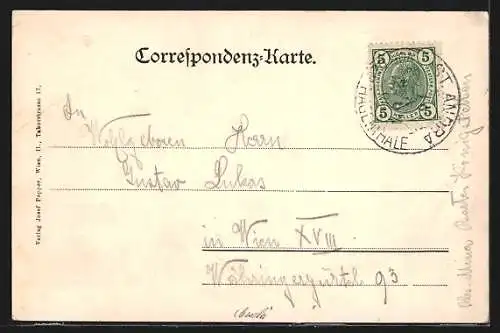 Correspondenz-Karte.
5 5
5 5
ST ANDRÄ
HAGENTHALE
An
Wohlgeboren Herrn
Gustav Lukas
in Wien XVIII
Währingergürtel 93
Verlag Josef Popper, Wien, II., Taborstrasse 17.